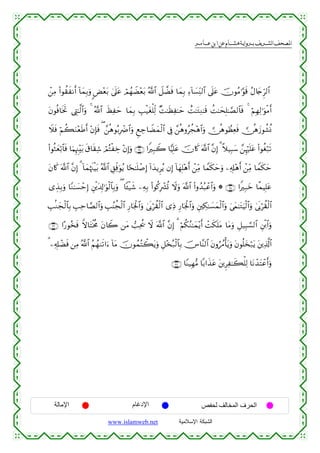 المصحف الشريف برواية هشام عن ابن عامر
ٱلرِّجَالُ قَوَّٰمُونَ عَلَى ٱلنِّسَآءِ بِمَا فَضَّلَ ٱللَّهُ بَعْضَهُمْ عَلَىٰ بَعْضٍ وَبِمَآ أَنفَقُوا۟ مِنْ
أَمْوَٰلِهِمْ ۚ فَٱلصَّٰلِحَٰتُ قَٰنِتَٰتٌ حَٰفِظَٰتٌ لِّلْغَيْبِ بِمَا حَفِظَ ٱللَّهُ ۚ وَٱلَّٰتِى تَخَافُونَ
نُشُوزَهُنَّ فَعِظُوهُنَّ وَٱهْجُرُوهُنَّ فِى ٱلْمَضَاجِعِ وَٱضْرِبُوهُنَّ ۖ فَإِنْ أَطَعْنَكُمْ فَلَا
تَبْغُوا۟ عَلَيْهِنَّ سَبِيلًا ۗ إِنَّ ٱللَّهَ كَانَ عَلِيًّا كَبِيرًا وَإِنْ خِفْتُمْ شِقَاقَ بَيْنِهِمَا فَٱبْعَثُوا۟
حَكَمًا مِّنْ أَهْلِهِۦ وَحَكَمًا مِّنْ أَهْلِهَآ إِن يُرِيدَآ إِصْلَٰحًا يُوَفِّقِ ٱللَّهُ بَيْنَهُمَآ ۗ إِنَّ ٱللَّهَ كَانَ
عَلِيمًا خَبِيرًا ۞ وَٱعْبُدُوا۟ ٱللَّهَ وَلَا تُشْرِكُوا۟ بِهِۦ شَيْـًٔا ۖ وَبِٱلْوَٰلِدَيْنِ إِحْسَٰنًا وَبِذِى
ٱلْقُرْبَىٰ وَٱلْيَتَٰمَىٰ وَٱلْمَسَٰكِينِ وَٱلْجَارِ ذِى ٱلْقُرْبَىٰ وَٱلْجَارِ ٱلْجُنُبِ وَٱلصَّاحِبِ بِٱلْجَنۢبِ
وَٱبْنِ ٱلسَّبِيلِ وَمَا مَلَكَتْ أَيْمَٰنُكُمْ ۗ إِنَّ ٱللَّهَ لَا يُحِبُّ مَن كَانَ مُخْتَالًا فَخُورًا
ٱلَّذِينَ يَبْخَلُونَ وَيَأْمُرُونَ ٱلنَّاسَ بِٱلْبُخْلِ وَيَكْتُمُونَ مَآ ءَاتَىٰهُمُ ٱللَّهُ مِن فَضْلِهِۦ ۗ
وَأَعْتَدْنَا لِلْكَٰفِرِينَ عَذَابًا مُّهِينًا
الحرف المخالف لحفص الإدغام الإمالة
الشبكة الإسلامية www.islamweb.net